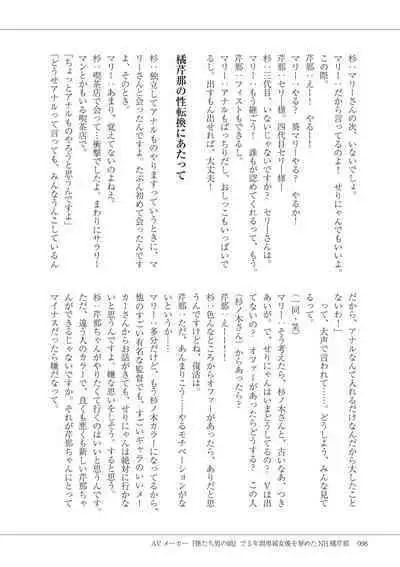 杉：マリーさんの次、いないでしょ。
マリー：だから言ってるのよ！　せりにゃんでもいいよ。
この際。
芹那：えー！　やるー！
マリー：やる？　葵マリーやる？　やるか！
芹那：セリー様。四代目セリー様ー
杉：三代目、いないじゃないですか？　セリーさんは。
マリー：もう継ごう！　誰もが認めてくれるって、もう。
芹那：フィストもできるし。
マリー：アナルもばっちりだし、おしっこもいっぱいで
るし。出すもん出せれば、大丈夫！
橘芹那の性転換にあたって
杉：独立してアナルものやりますっていうときに、マ
リーさんと会ったんですよ。たぶん初めて会ったんです
よ、そのとき。
マリー：あまり、覚えてないのよねえ。
杉：喫茶店で会って…衝撃でしたよ。まわりにサラリー
マンとかもいる喫茶店で。
「ちょっとアナルものやろうと思うんですよ」
「どうせアナルって言っても、みんなうんこしているん
だから、アナルなんて入れるだけなんだから大したこと
ないわー」
って、大声で言われて……。どうしよう、みんな見て
るって。
（一同・笑）
マリー：そう考えたら、杉ノ木さんと、古いなあ、つき
あいが。で、せりにゃんはいまどうしてるの？　Ｖは出
てないの？　オファーがあったらどうする？　この人
（杉ノ木さん）からあったら？
芹那：えーーー！
杉：色んなところからオファーがあったら、ありだと思
うんですけどね、復活は。
芹那：ただ、あんまりこうー！　やるモチベーションがな
いというか！
マリー：多分だけど、もう杉ノ木カラーになってるから、
他のすごい有名な監督でも、すごいギャラのいいメー
カーさんからお話がきても、せりにゃんは絶対に行かな
いと思うんですよ。嫌な思いをしそう。する。
杉：芹那ちゃんがやりたくて行くのはいいと思うんです。
ただ、違う人のカラーで、良くも悪くも新しい芹那ちゃ
んができるじゃないですか。それが芹那ちゃんにとって
マイナスだったら嫌だなって。
AVメーカー『堕たち男の娘』で5年間専属女優を努めたNH橘芹那　098